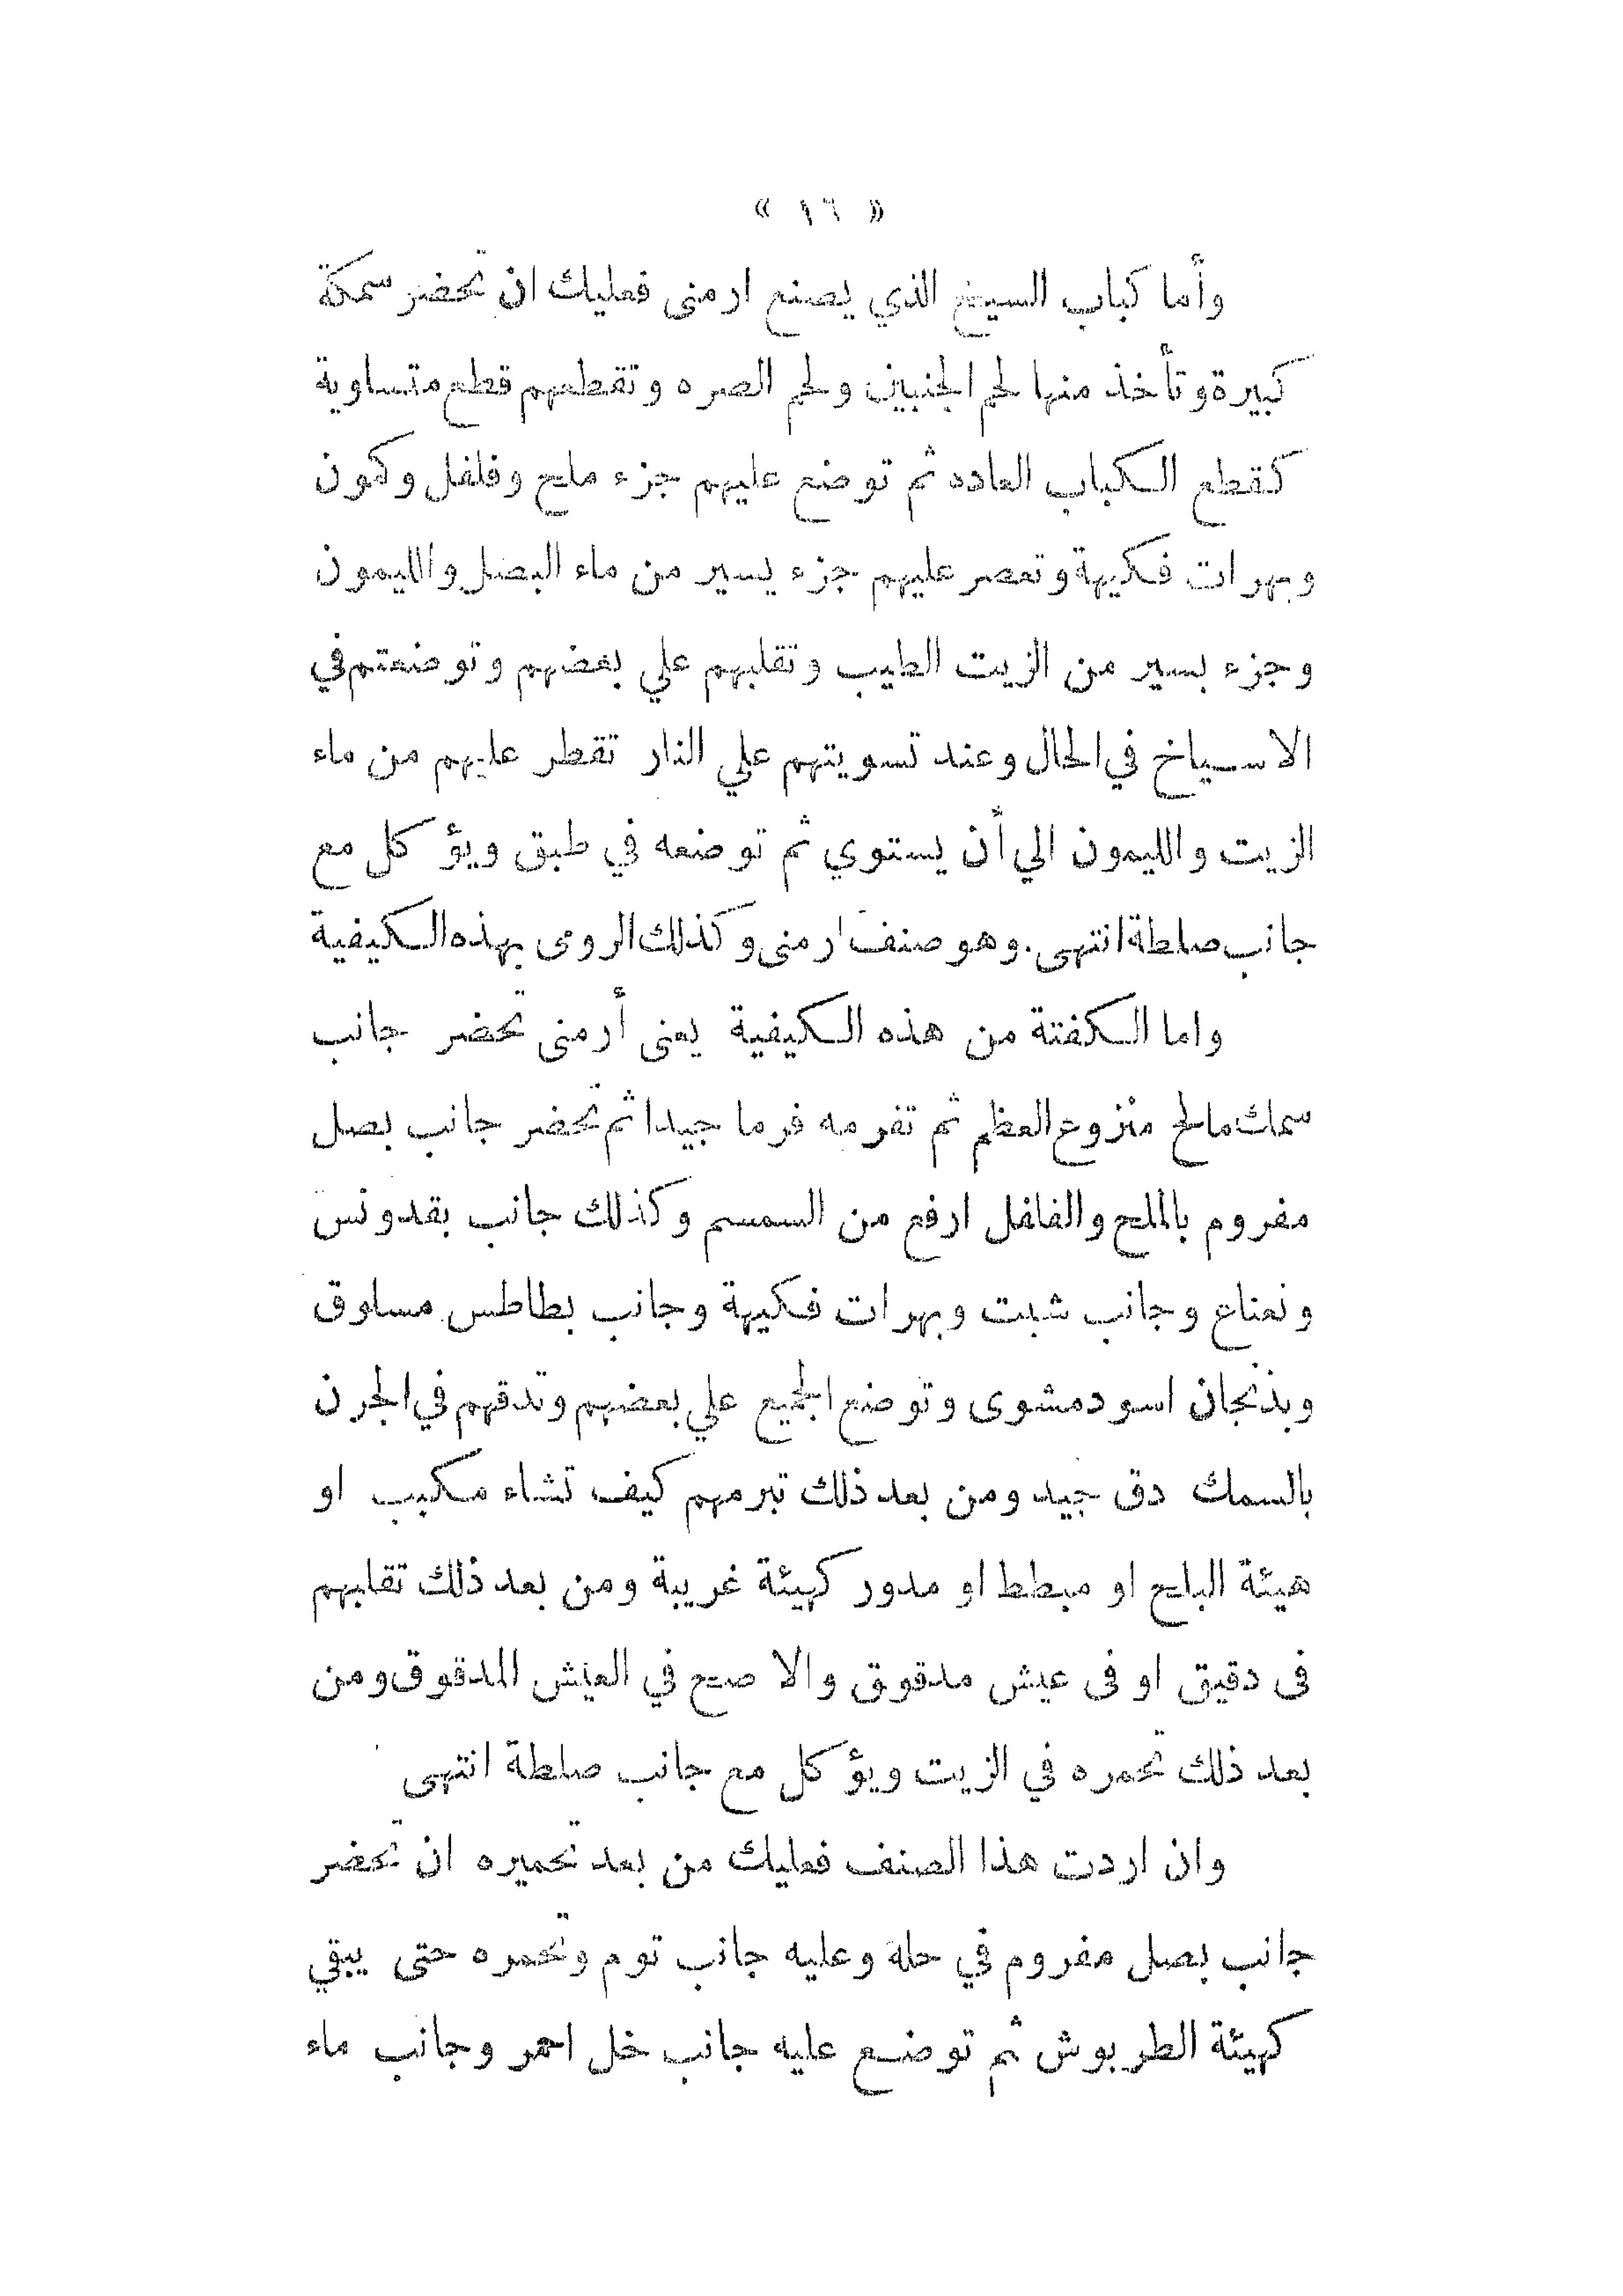 « ١٦ »
وأما كباب السيخ الذي يصنع ارمنى فعليك ان تحضر سمكة
كبيرة وتأخذ منها لحم الجنبين ولحم الصره وتقطعهم قطع متساوية
كقطع الكباب العاده ثم توضع عليهم جزء ملح وفلفل وكمون
وبهرات فكيهة وتعصر عليهم جزء يسير من ماء البصل والليمون
وجزء بسير من الزيت الطيب وتقلبهم علي بعضهم وتوضعتم في
الاسياخ في الحال وعند تسويتهم علي النار تقطر عليهم من ماء
الزيت والليمون الي أن يستوي ثم توضعه في طبق ويؤكل مع
جانب صلطة انتهى . وهو صنف ارمنى وكذلك الرومى بهذه الكيفية
واما الكفتة من هذه الكيفية يعنى أرمنى تحضر جانب
سمك مالح منزوع العظم ثم تفرمه فرما جيدا ثم تحضر جانب بصل
مفروم بالملح والفافل ارفع من السمسم وكذلك جانب بقدونس
ونعناع وجانب شبت وبهرات فكيهة وجانب بطاطس مسلوق
وبذنجان اسود مشوى وتوضع الجميع علي بعضهم وتدقهم في الجرن
بالسمك دق جيد ومن بعد ذلك تبرمهم كيف تشاء مكبب او
هيئة البلح او مبطط او مدور كهيئة غريبة ومن بعد ذلك تقلبهم
فى دقيق او فى عيش مدقوق والا صح في العيش المدقوق ومن
بعد ذلك تحمره في الزيت ويؤكل مع جانب صلطة انتهى
وان اردت هذا الصنف فعليك من بعد تحميره ان تحضر
جانب بصل مفروم في حلة وعليه جانب توم وتحمره حتى يبقي
كهيئة الطربوش ثم توضع عليه جانب خل احمر وجانب ماء